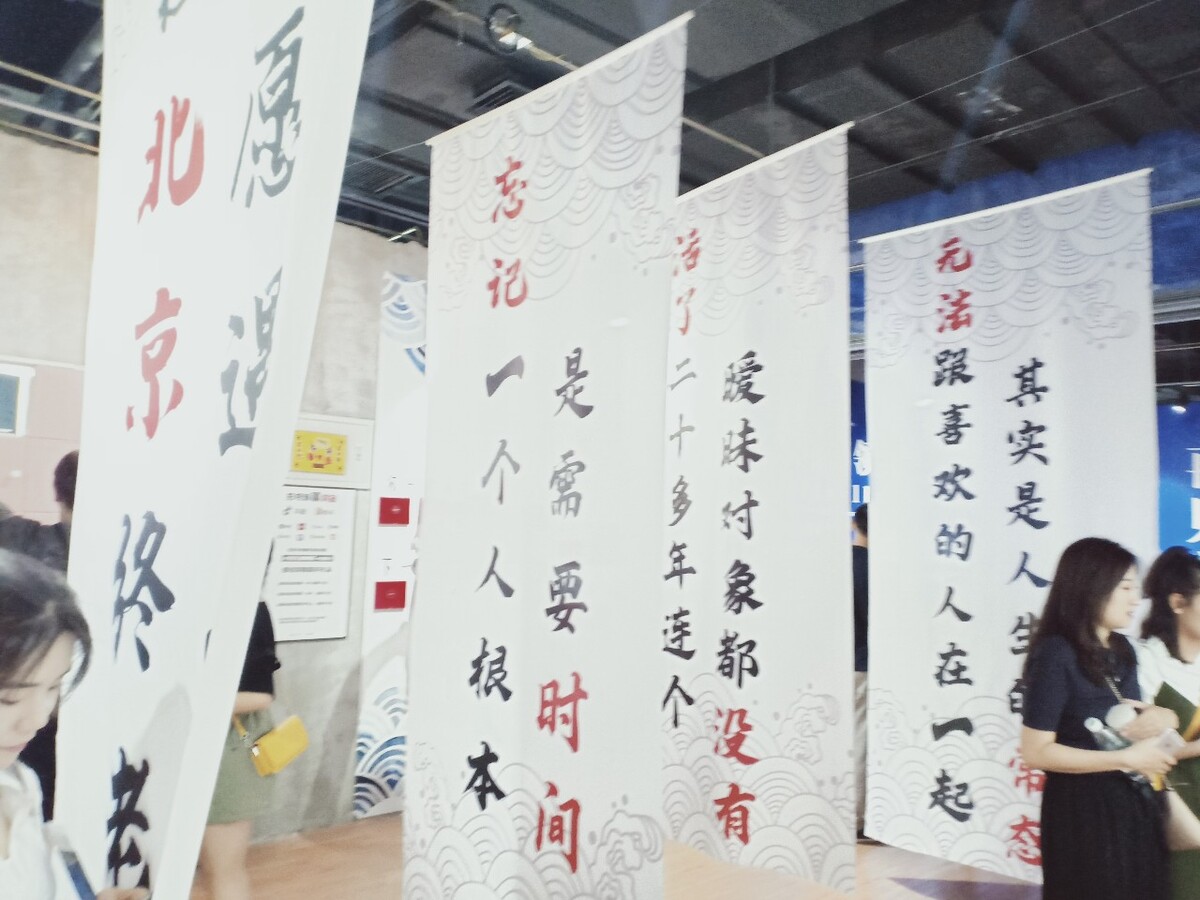 北京终老
愿
忘记一个人根本
是需要时间
活了二十多年连个
暧昧对象都没有
无法跟喜欢的人在一起
其实是人生的常态